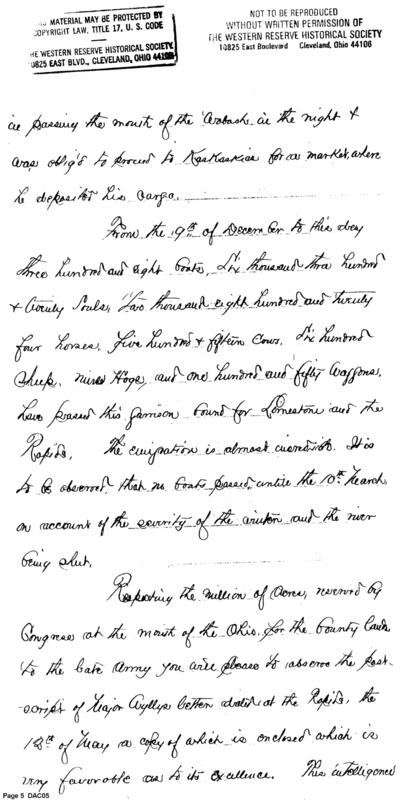 THIS MATERIAL MAY BE PROTECTED BY
COPYRIGHT LAW, TITLE 17, U. S. CODE
THE WESTERN RESERVE HISTORICAL SOCIETY
10825 EAST BLVD., CLEVELAND, OHIO 44106
NOT TO BE REPRODUCED
WITHOUT WRITTEN PERMISSION OF
THE WESTERN RESERVE HISTORICAL SOCIETY
10825 East Boulevard Cleveland, Ohio 44106
in passing the mouth of the Wabash in the night &
was oblig'd to proceed to Kaskaskias for a market, where
he deposited his cargo.
From the 9th of December to this day
three hundred and eight boats, Six thousand three hundred
& twenty Souls, Two thousand eight hundred and twenty
four horses, five hundred & fifteen Cows, Six hundred
Sheep, nine Hogs, and one hundred and fifty Waggons,
have passed this garrison bound for Limestone and the
Rapids, The emigration is almost incredible. It is
to be observed, that no boats passed, until the 10th March,
on account of the severity of the winter and the river
being shut.
Respecting the million of Acres, reserved by
Congress at the mouth of the Ohio, for the bounty lands
to the late Army you will please to observe the post-
-script of Major Wyllys letter dated at the Rapids, the
18th of May a copy of which is enclosed which is
very favorable as to its excellence. This intelligence
Page 5 DAC05